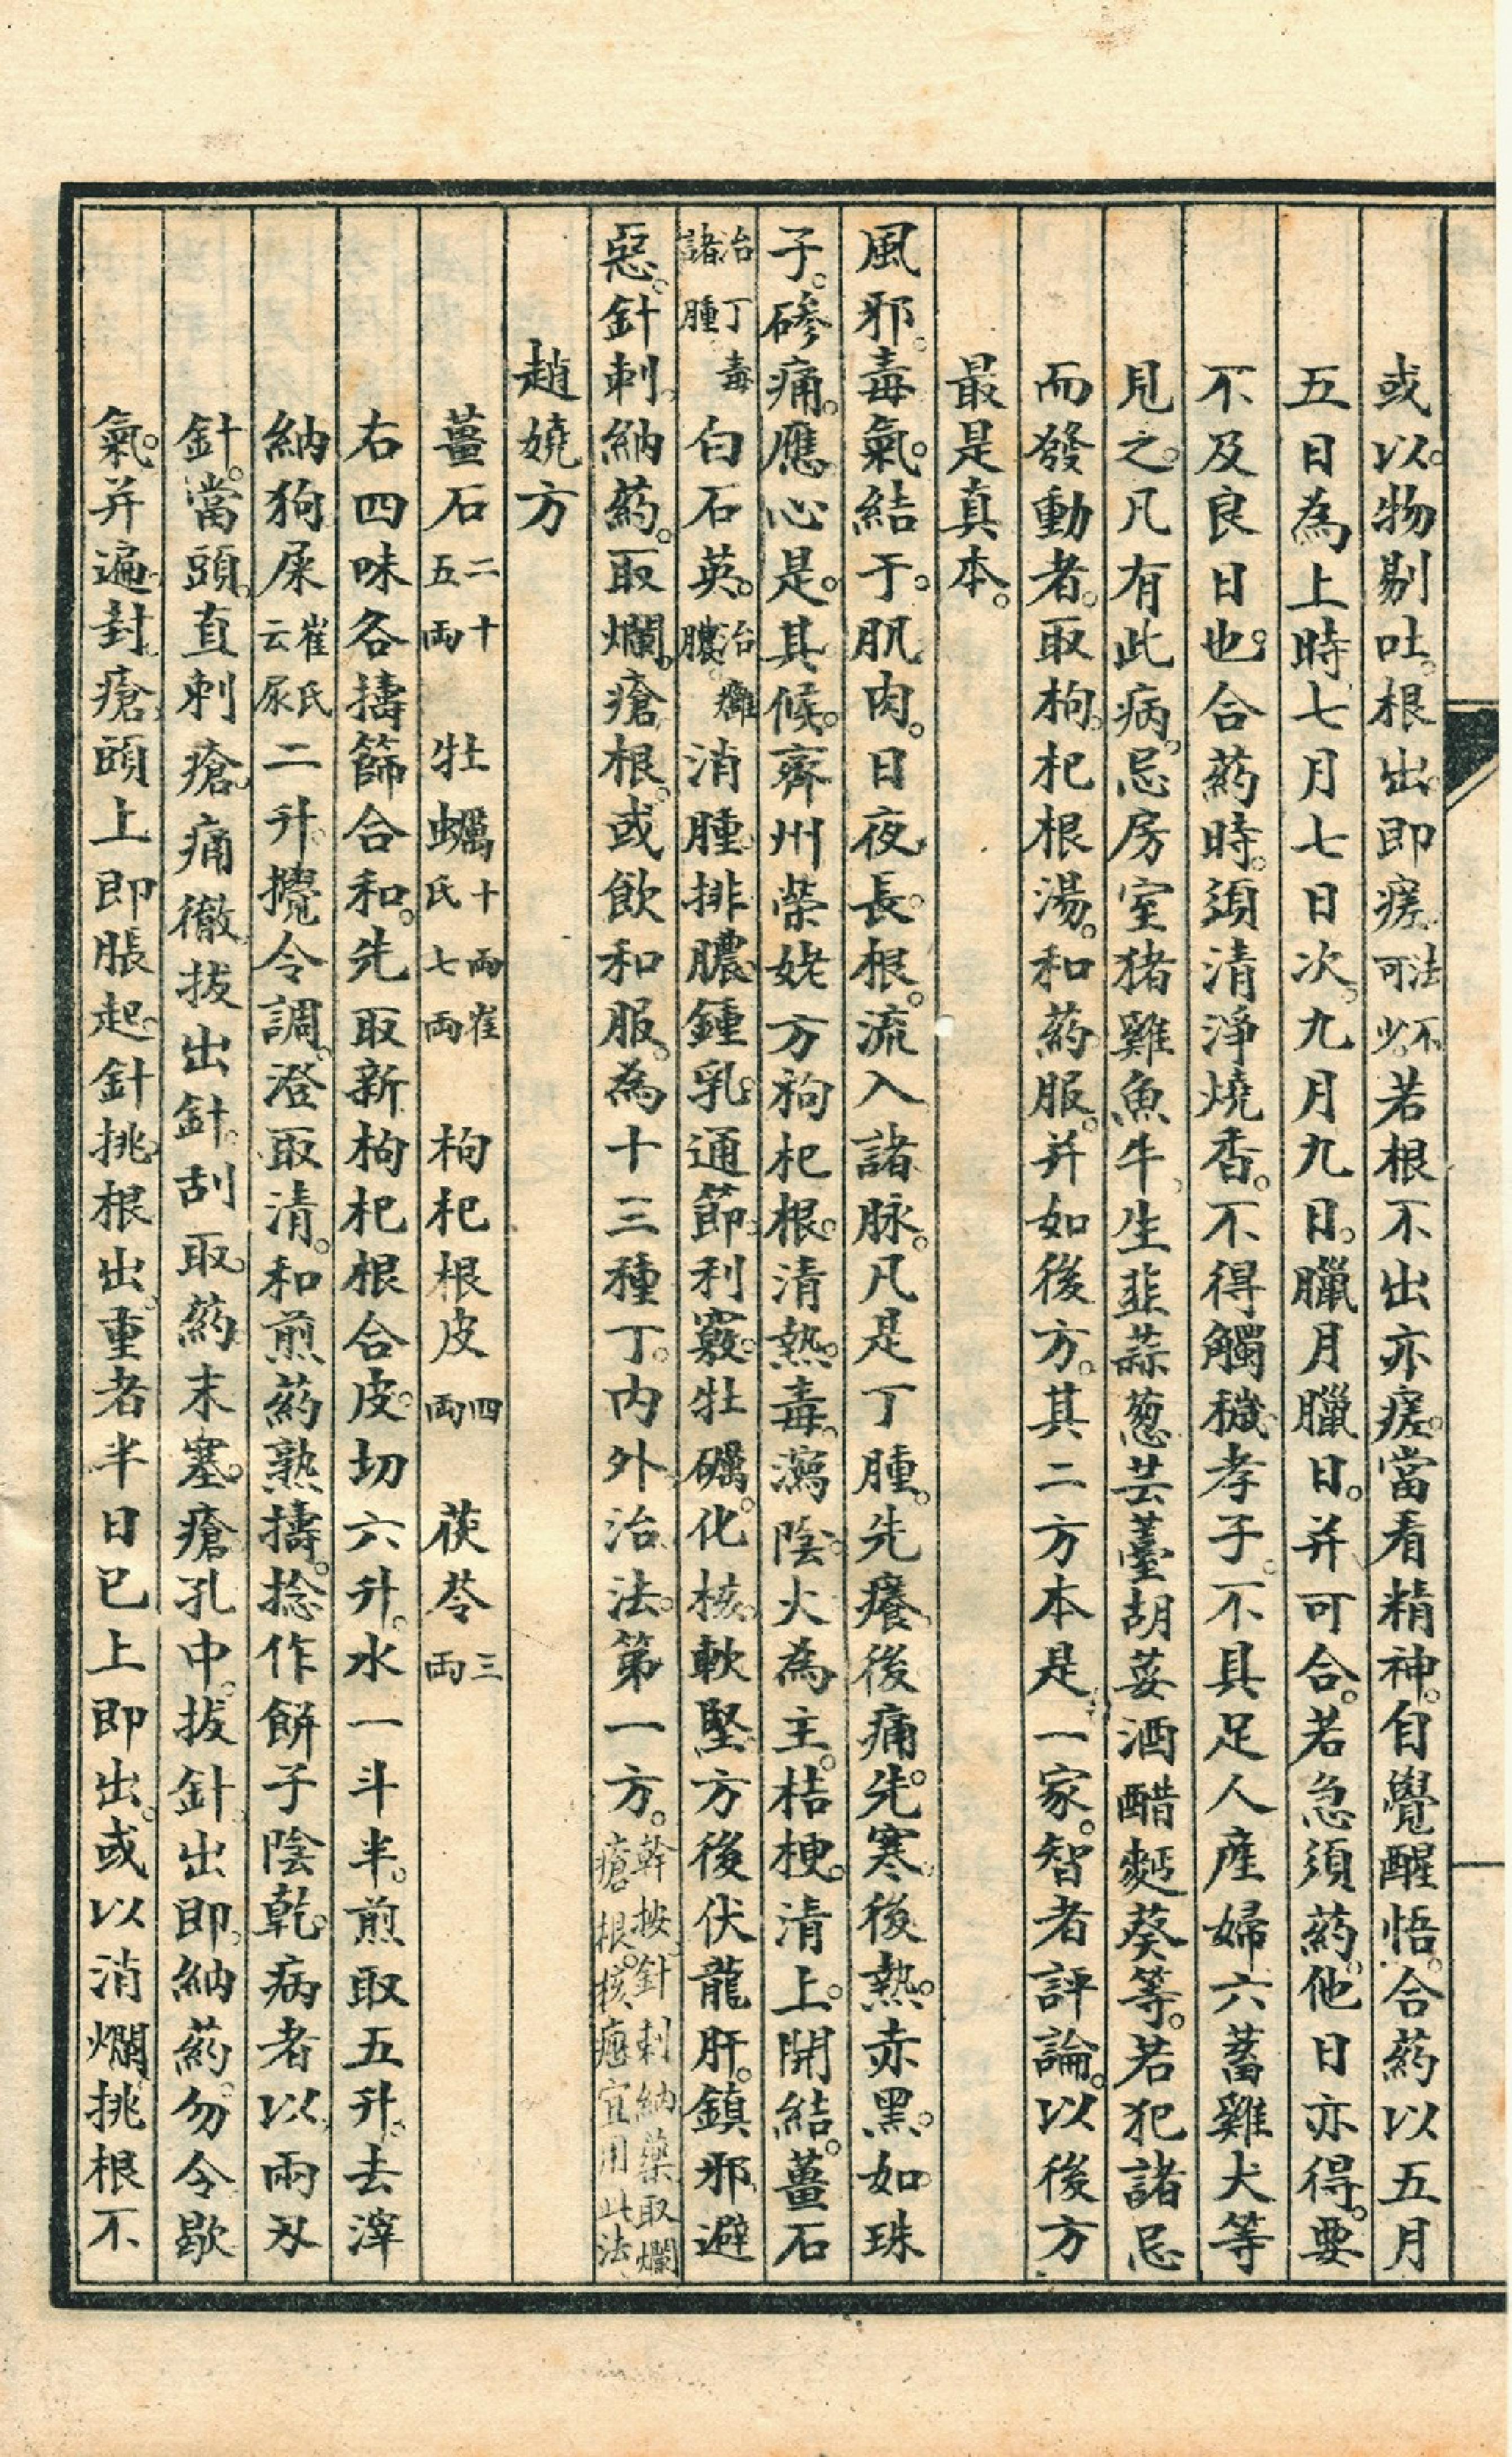 或以物剔吐根出即瘥法不可少若根不出亦瘥當看精神自覺醒悟合葯以五月
五日為上時七月七日次九月九日臘月臘日并可合若急須葯他日亦得要
不及良日也合葯時須清淨燒香不得觸穢孝子不具足人產婦六畜雞犬等
見之凡有此病忌房室猪雞魚牛生韭蒜葱芸薹胡荽酒醋麪葵等若犯諸忌
而發動者取枸杞根湯和葯服并如後方其二方本是一家智者評論以後方
最是真本
風邪毒氣結于肌肉日夜長根流入諸脉凡是丁腫先癢後痛先寒後熱赤黑如珠
子磣痛應心是其候齊州榮姥方枸杞根清熱毒瀉陰火為主桔梗清上開結薑石
治丁毒諸腫白石英治癰膿消腫排膿鍾乳通節利竅牡礪化核軟堅方後伏龍肝鎮邪避
惡針刺納葯取爛瘡根或飲和服為十三種丁內外治法第一方幹按針刺納藥取爛瘡根核瘜宜用此法
趙嬈方
薑石二十五兩 牡蠣十兩崔氏七兩 枸杞根皮四兩 茯苓三兩
右四味各擣篩合和先取新枸杞根合皮切六升水一斗半煎取五升去滓
納狗屎崔氏云尿二升攪令調澄取清和煎葯熟擣捻作餅子陰乾病者以兩刃
針當頭直刺瘡痛徹拔出針刮取葯末塞瘡孔中拔針出即納葯勿令歇
氣并遍封瘡頭上即脹起針挑根出重者半日已上即出或以消爛挑根不